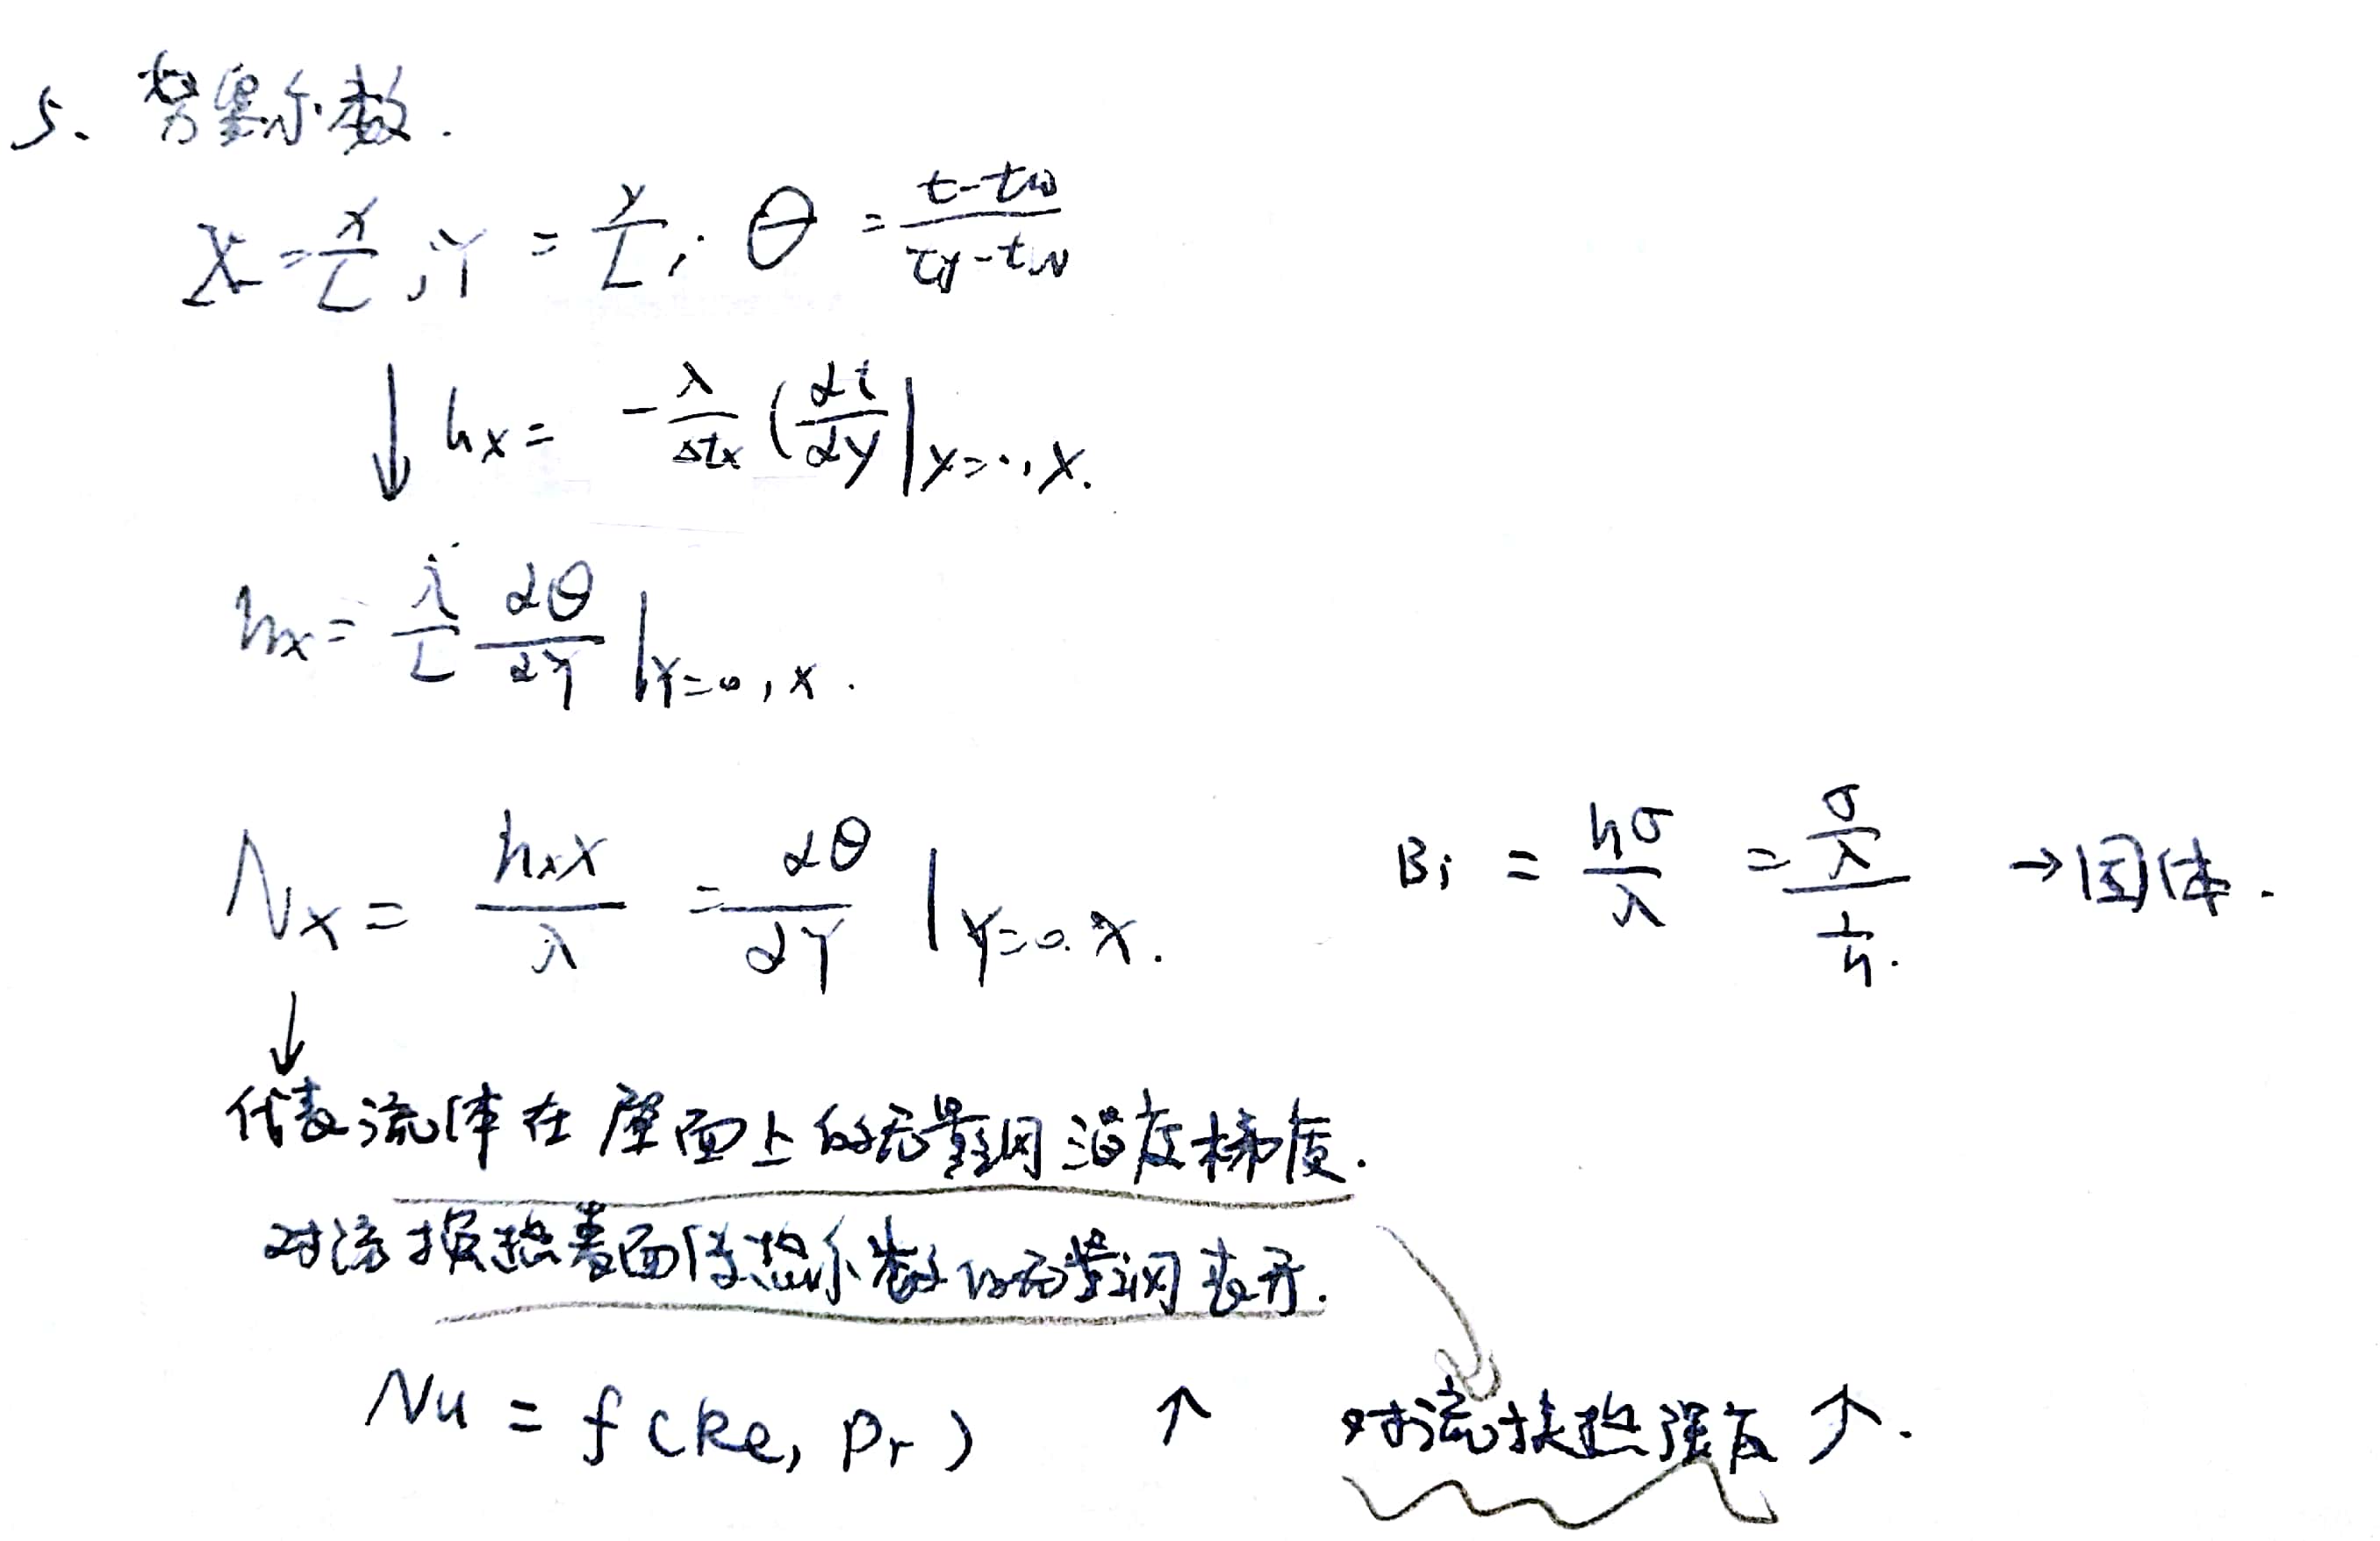 5. 努塞尔数.
X = x/L , Y = y/L ; Θ = (t-tw)/(tf-tw)
↓ hx = -λ/Δtx (∂t/∂y|y=0,x.
hx = λ/L ∂Θ/∂Y |Y=0,x.
Nx = hxx/λ = ∂Θ/∂Y |Y=0.x. Bi = hσ/λ = (σ/λ)/(1/h). →固体.
↓
代表流体在壁面上的无量纲温度梯度.
对流换热表面传热系数的无量纲表示.
Nu = f(Re, Pr) ↑ 对流换热强度↑.